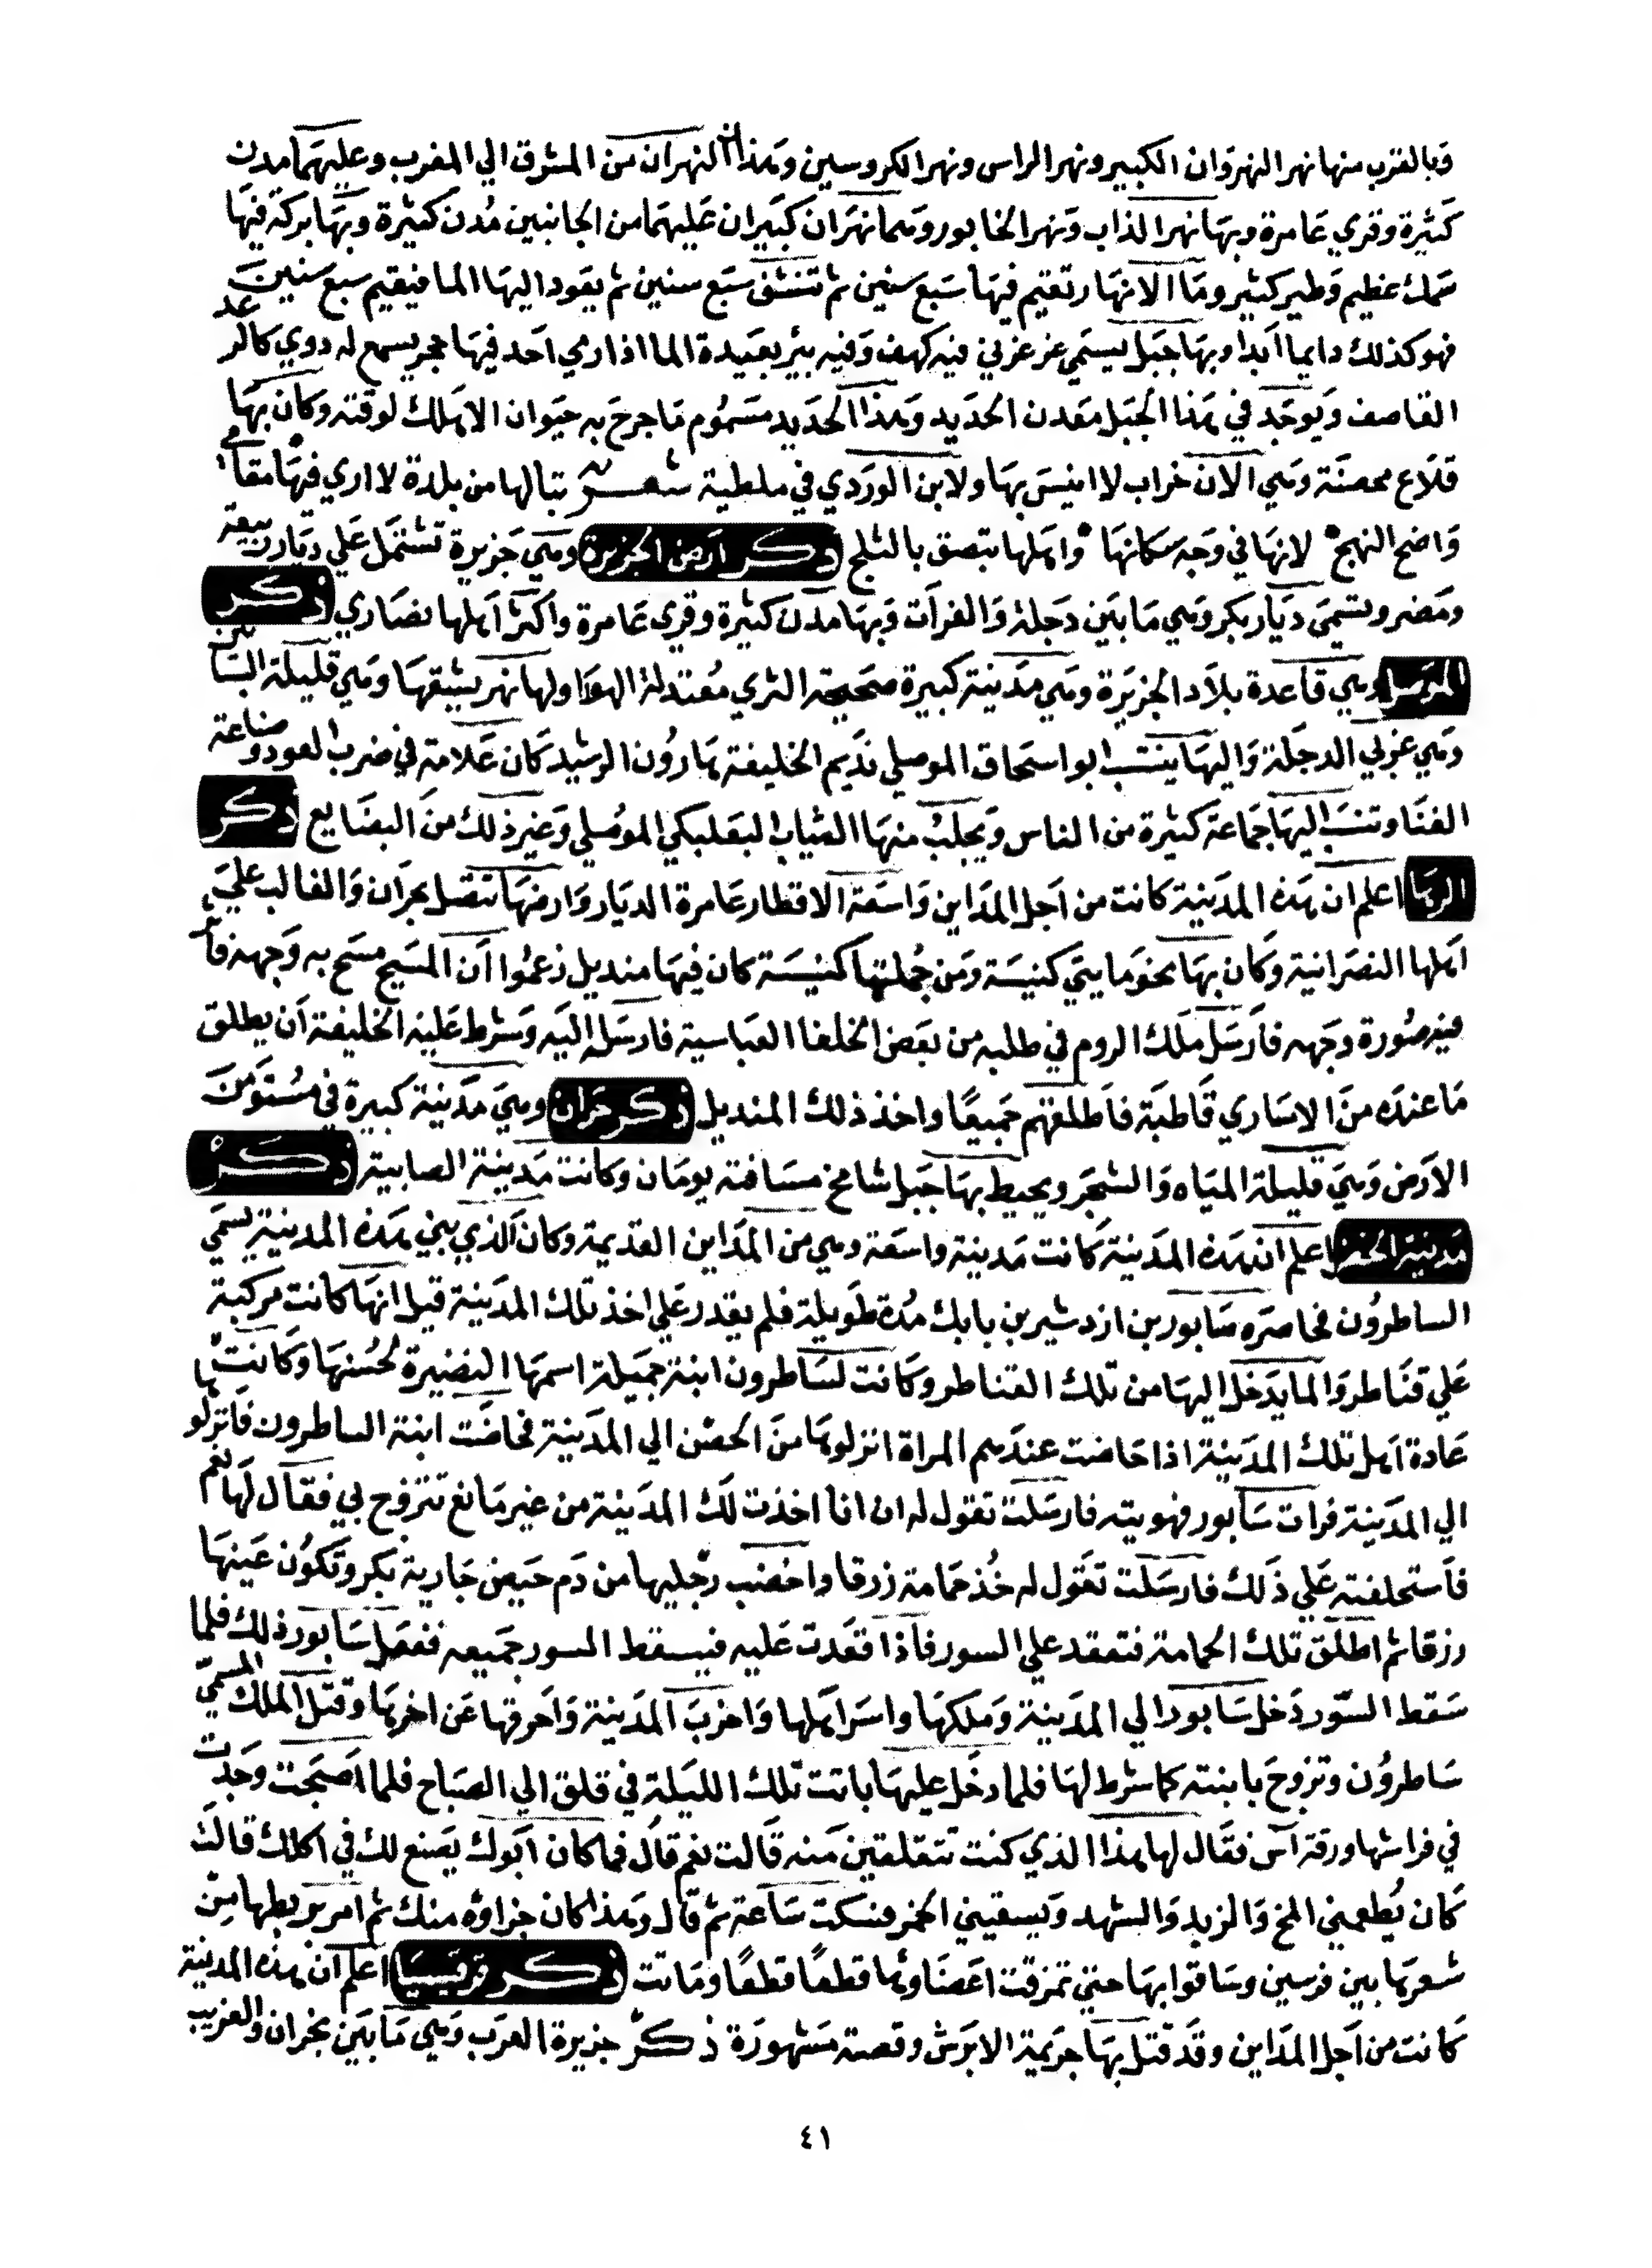 وبالقرب منها نهر النهروان الكبير ونهر الراس ونهر الكروسين وهذان النهران من المشرق الي المغرب وعليهما مدن
كثيرة وقري عامرة وبها نهر الذاب ونهر الخابور وهما نهران كبيران عليهما من الجانبين مدن كثيرة وبها بركة فيها
سمك عظيم وطير كثير وما الانهار تقيم فيها سبع سنين ثم تنشف سبع سنين ثم يعود اليها الما فيقيم سبع سنين
فهو كذلك دايما ابدا وبها جبل يسمي فيه كهف وفيه بير بعيدة الما اذا رمي احد فيها حجر يسمع له دوي كالرعد
القاصف ويوجد في هذا الجبل معدن الحديد وهذا الحديد مسموم ما جرح به حيوان الا هلك لوقته وكان بها
قلاع محصنة وهي الان خراب لا انيس بها ولابن الوردي في ملطية شعر تبا لها من بلدة لا اري فيها مقام
واضح النهج لانها في وجه سكانها واهلها تبصق بالثلج ذكر ارض الجزيرة وهي جزيرة تشتمل علي ديار ربيعة
ومضر وتسمي ديار بكر وهي ما بين دجلة والفرات وبها مدن كثيرة وقري عامرة واكثر اهلها نصاري ذكر
الموصل وهي قاعدة بلاد الجزيرة وهي مدينة كبيرة صحيحة الثري معتدلة الهوا ولها نهر يشقها وهي قليلة البساتين
وهي غربي الدجلة واليها ينتسب ابو اسحاق الموصلي نديم الخليفة هارون الرشيد كان علامة في ضرب العود وصناعة
الغنا وتنسب اليها جماعة كثيرة من الناس ويجلب منها الثياب البعلبكي الموصلي وغير ذلك من البضايع ذكر
الرها اعلم ان هذه المدينة كانت من اجل المداين واسعة الاقطار عامرة الديار وارضها تتصل بحران والغالب علي
اهلها النصرانية وكان بها نحو مايتي كنيسة ومن جملتها كنيسة كان فيها منديل زعموا ان المسيح مسح به وجهه فاثر
فيه صورة وجهه فارسل ملك الروم في طلبه من بعض الخلفا العباسية فارسله اليه وشرط عليه الخليفة ان يطلق
ما عنده من الاساري قاطبة فاطلقهم جميعا واخذ ذلك المنديل ذكر حران وهي مدينة كبيرة في مستو من
الارض وهي قليلة المياه والشجر ويحيط بها جبل شامخ مسافته يومان وكانت مدينة الصابية ذكر
مدينة الحضر اعلم ان هذه المدينة كانت مدينة واسعة وهي من المداين القديمة وكان الذي بني هذه المدينة يسمي
الساطرون فحاصره سابور بن ازدشير بن بابك مدة طويلة فلم يقدر علي اخذ تلك المدينة قيل انها كانت مركبة
علي قناطر والما يدخل اليها من تلك القناطر وكانت لساطرون ابنة جميلة اسمها النضيرة لحسنها وكانت
عادة اهل تلك المدينة اذا حاضت عندهم المراة انزلوها من الحصن الي المدينة فحاضت ابنة الساطرون فانزلوها
الي المدينة فرات سابور فهويته فارسلت تقول له ان انا اخذت لك المدينة من غير مانع تتزوج بي فقال لها نعم
فاستحلفته علي ذلك فارسلت تقول له خذ حمامة زرقا واخضب رجليها من دم حيض جارية بكر وتكون عينها
زرقا ثم اطلق تلك الحمامة فتقعد علي السور فاذا قعدت عليه فيسقط السور جميعه ففعل سابور ذلك فلما
سقط السور دخل سابور الي المدينة وملكها واسر اهلها واخرب المدينة واحرقها عن اخرها وقتل الملك المسمي
ساطرون وتزوج بابنته كما شرط لها فلما دخل عليها باتت تلك الليلة في قلق الي الصباح فلما اصبحت وجدت
في فراشها ورقة آس فقال لها هذا الذي كنت تتقلقين منه قالت نعم قال فما كان ابوك يصنع لك في اكلك قالت
كان يطعمني المخ والزبد والشهد ويسقيني الخمر فسكت ساعة ثم قال وهذا كان جزاؤه منك ثم امر بربطها من
شعرها بين فرسين وساقوا بها حتي تمزقت اعضاؤها قطعا قطعا وماتت ذكر قرقيسيا اعلم ان هذه المدينة
كانت من اجل المداين وقد قتل بها جريمة الابرش وقصته مشهورة ذكر جزيرة العرب وهي ما بين نجران والعزيب
٤١